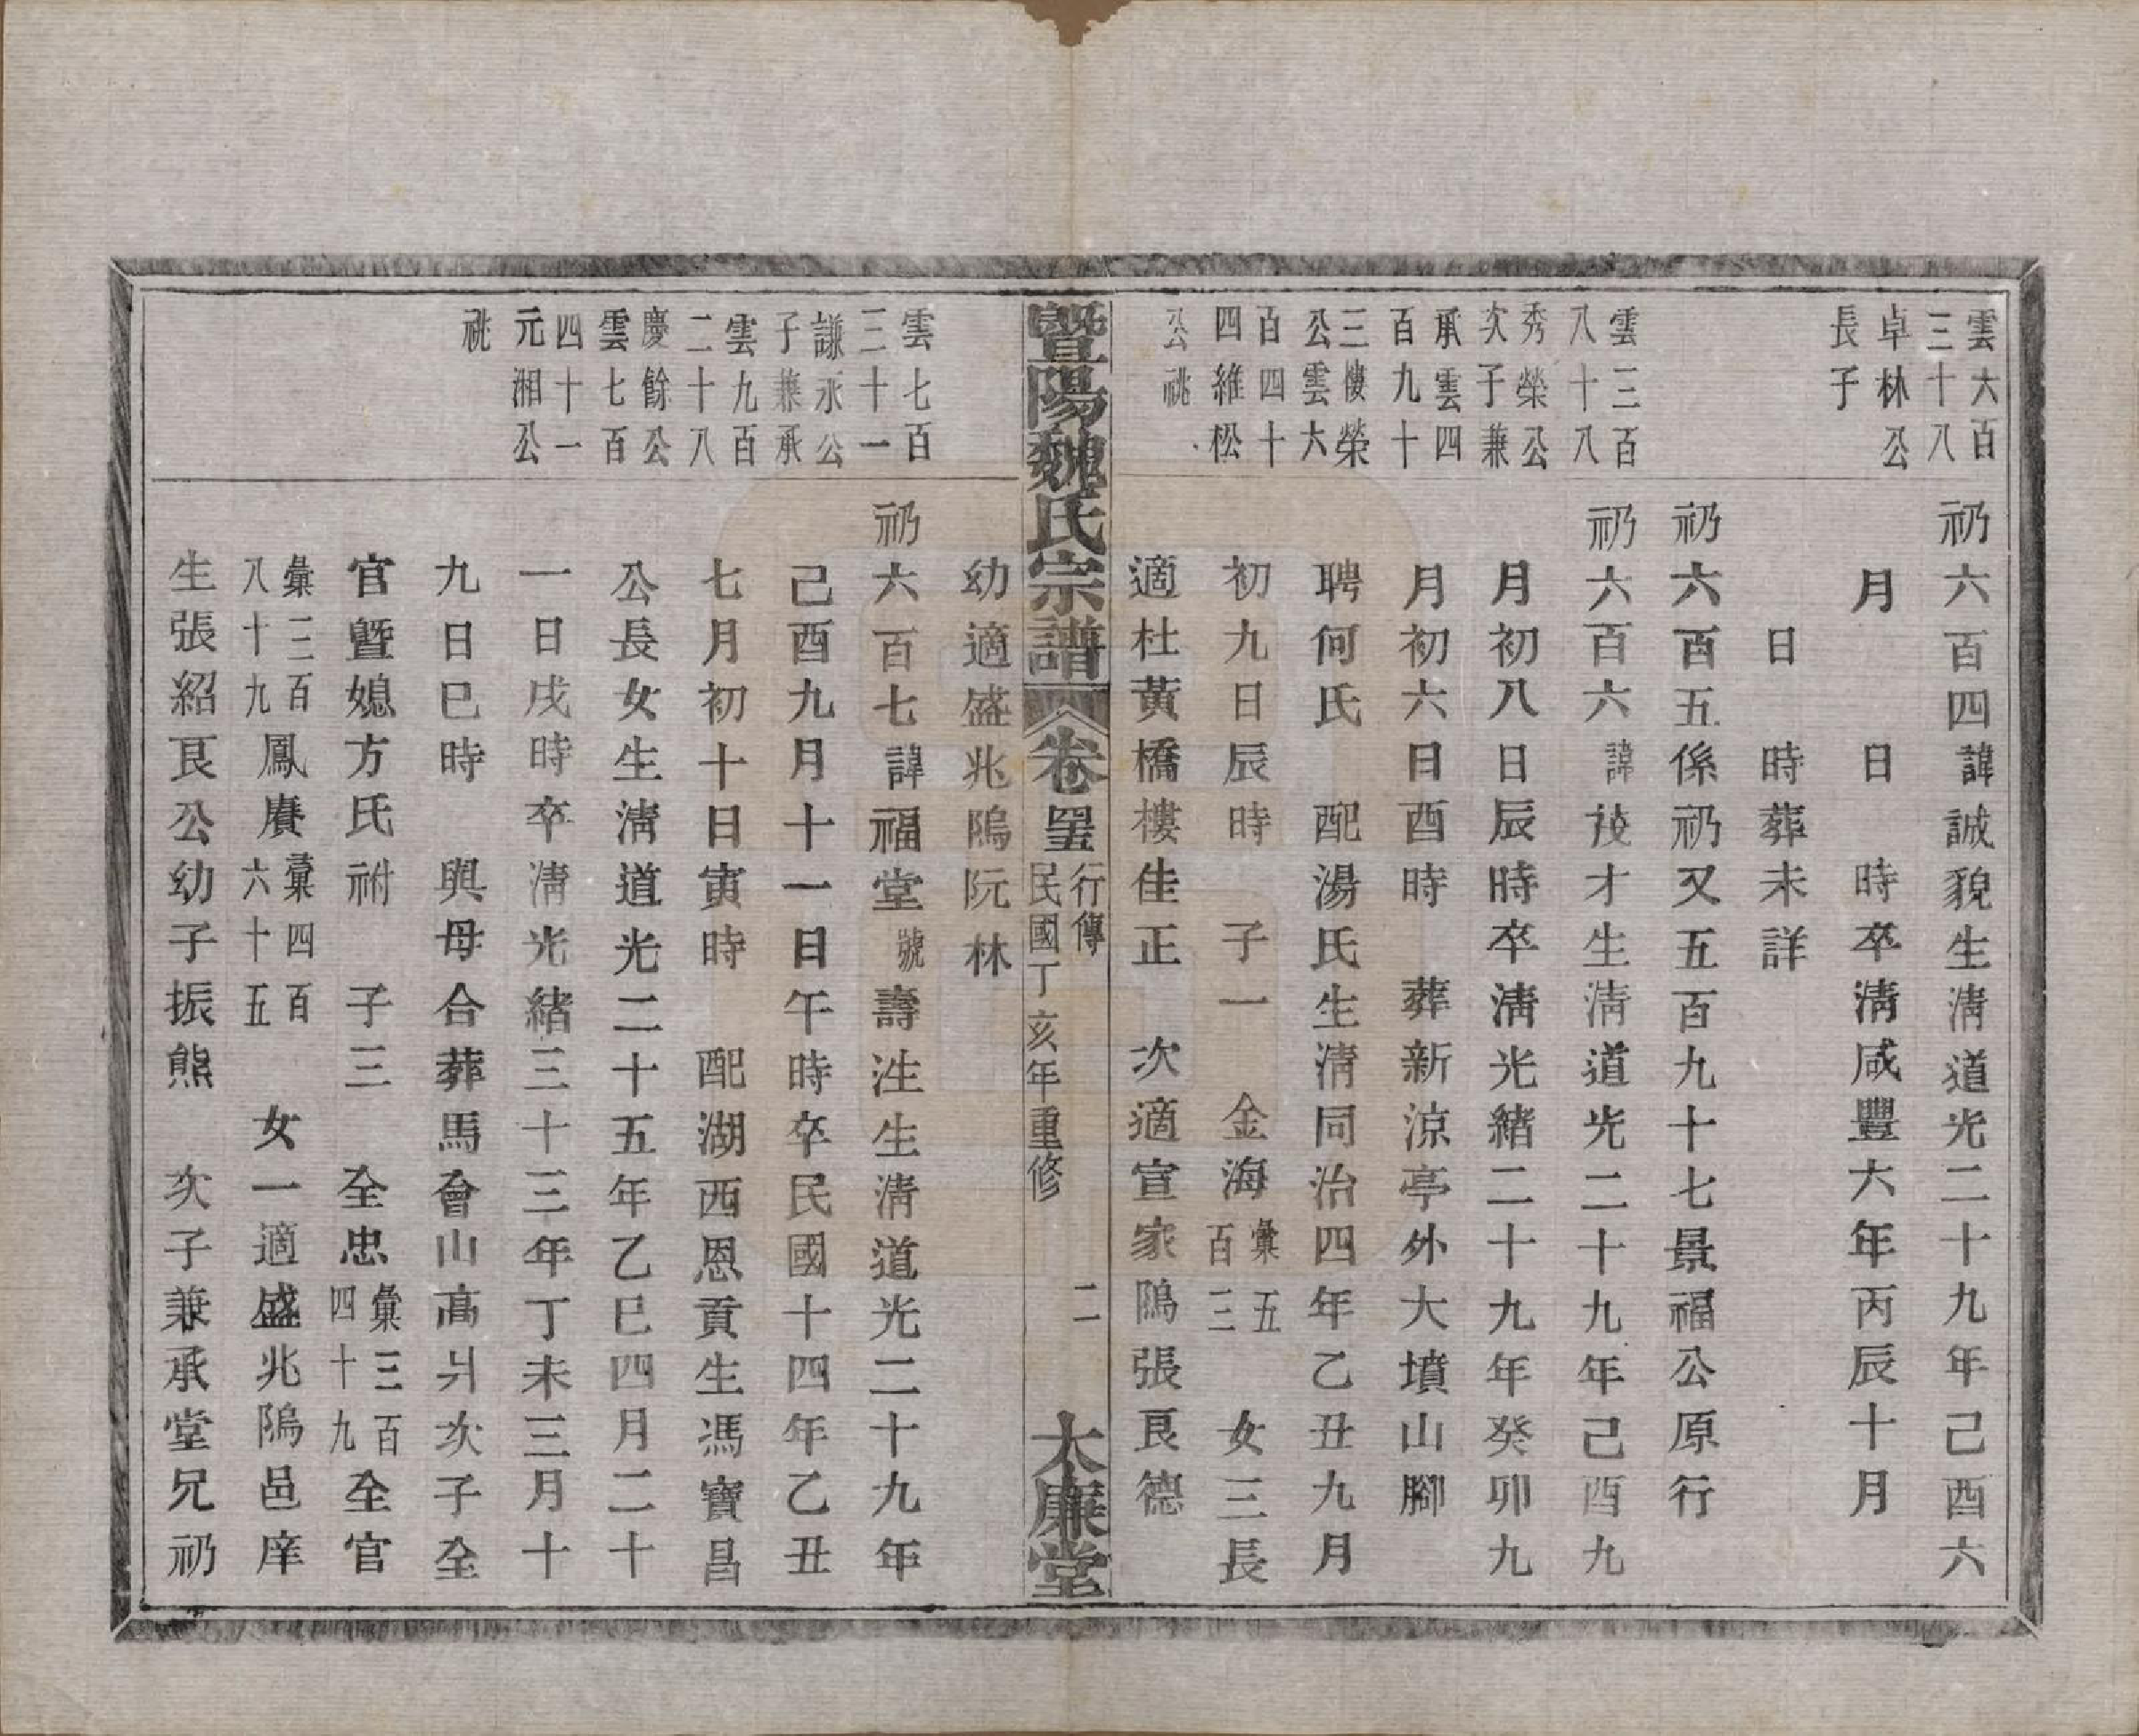 雲六百
三十八
卓林公
長子
祁六百四諱誠貌生清道光二十九年己酉六
月　日　時卒清咸豐六年丙辰十月
日　時葬未詳
祁六百五係祁又五百九十七景福公原行
雲三百
八十八
秀榮公
次子兼
承雲四
百九十
三樓榮
公雲六
百四十
四維松
公祧
祁六百六諱茂才生清道光二十九年己酉九
月初八日辰時卒清光緒二十九年癸卯九
月初六日酉時　葬新涼亭外大墳山腳
聘何氏　配湯氏生清同治四年乙丑九月
初九日辰時　子一　金海彙五百三　女三長
適杜黃橋樓佳正　次適宣家隝張艮德
暨陽魏氏宗譜　卷　行傳　民國丁亥年重修　二　大廉堂
幼適盛兆隝阮林
雲七百
三十一
謙永公
子兼承
雲九百
二十八
慶餘公
雲七百
四十一
元湘公
祧
祁六百七諱福堂號壽泩生清道光二十九年
己酉九月十一日午時卒民國十四年乙丑
七月初十日寅時　配湖西恩貢生馮寶昌
公長女生清道光二十五年乙巳四月二十
一日戌時卒清光緒三十三年丁未三月十
九日巳時　與母合葬馬會山高爿次子全
官暨媳方氏祔　子三　全忠彙三百四十九全官
彙三百八十九鳳賡彙四百六十五　女一適盛兆隝邑庠
生張紹艮公幼子振熊　次子兼承堂兄祁